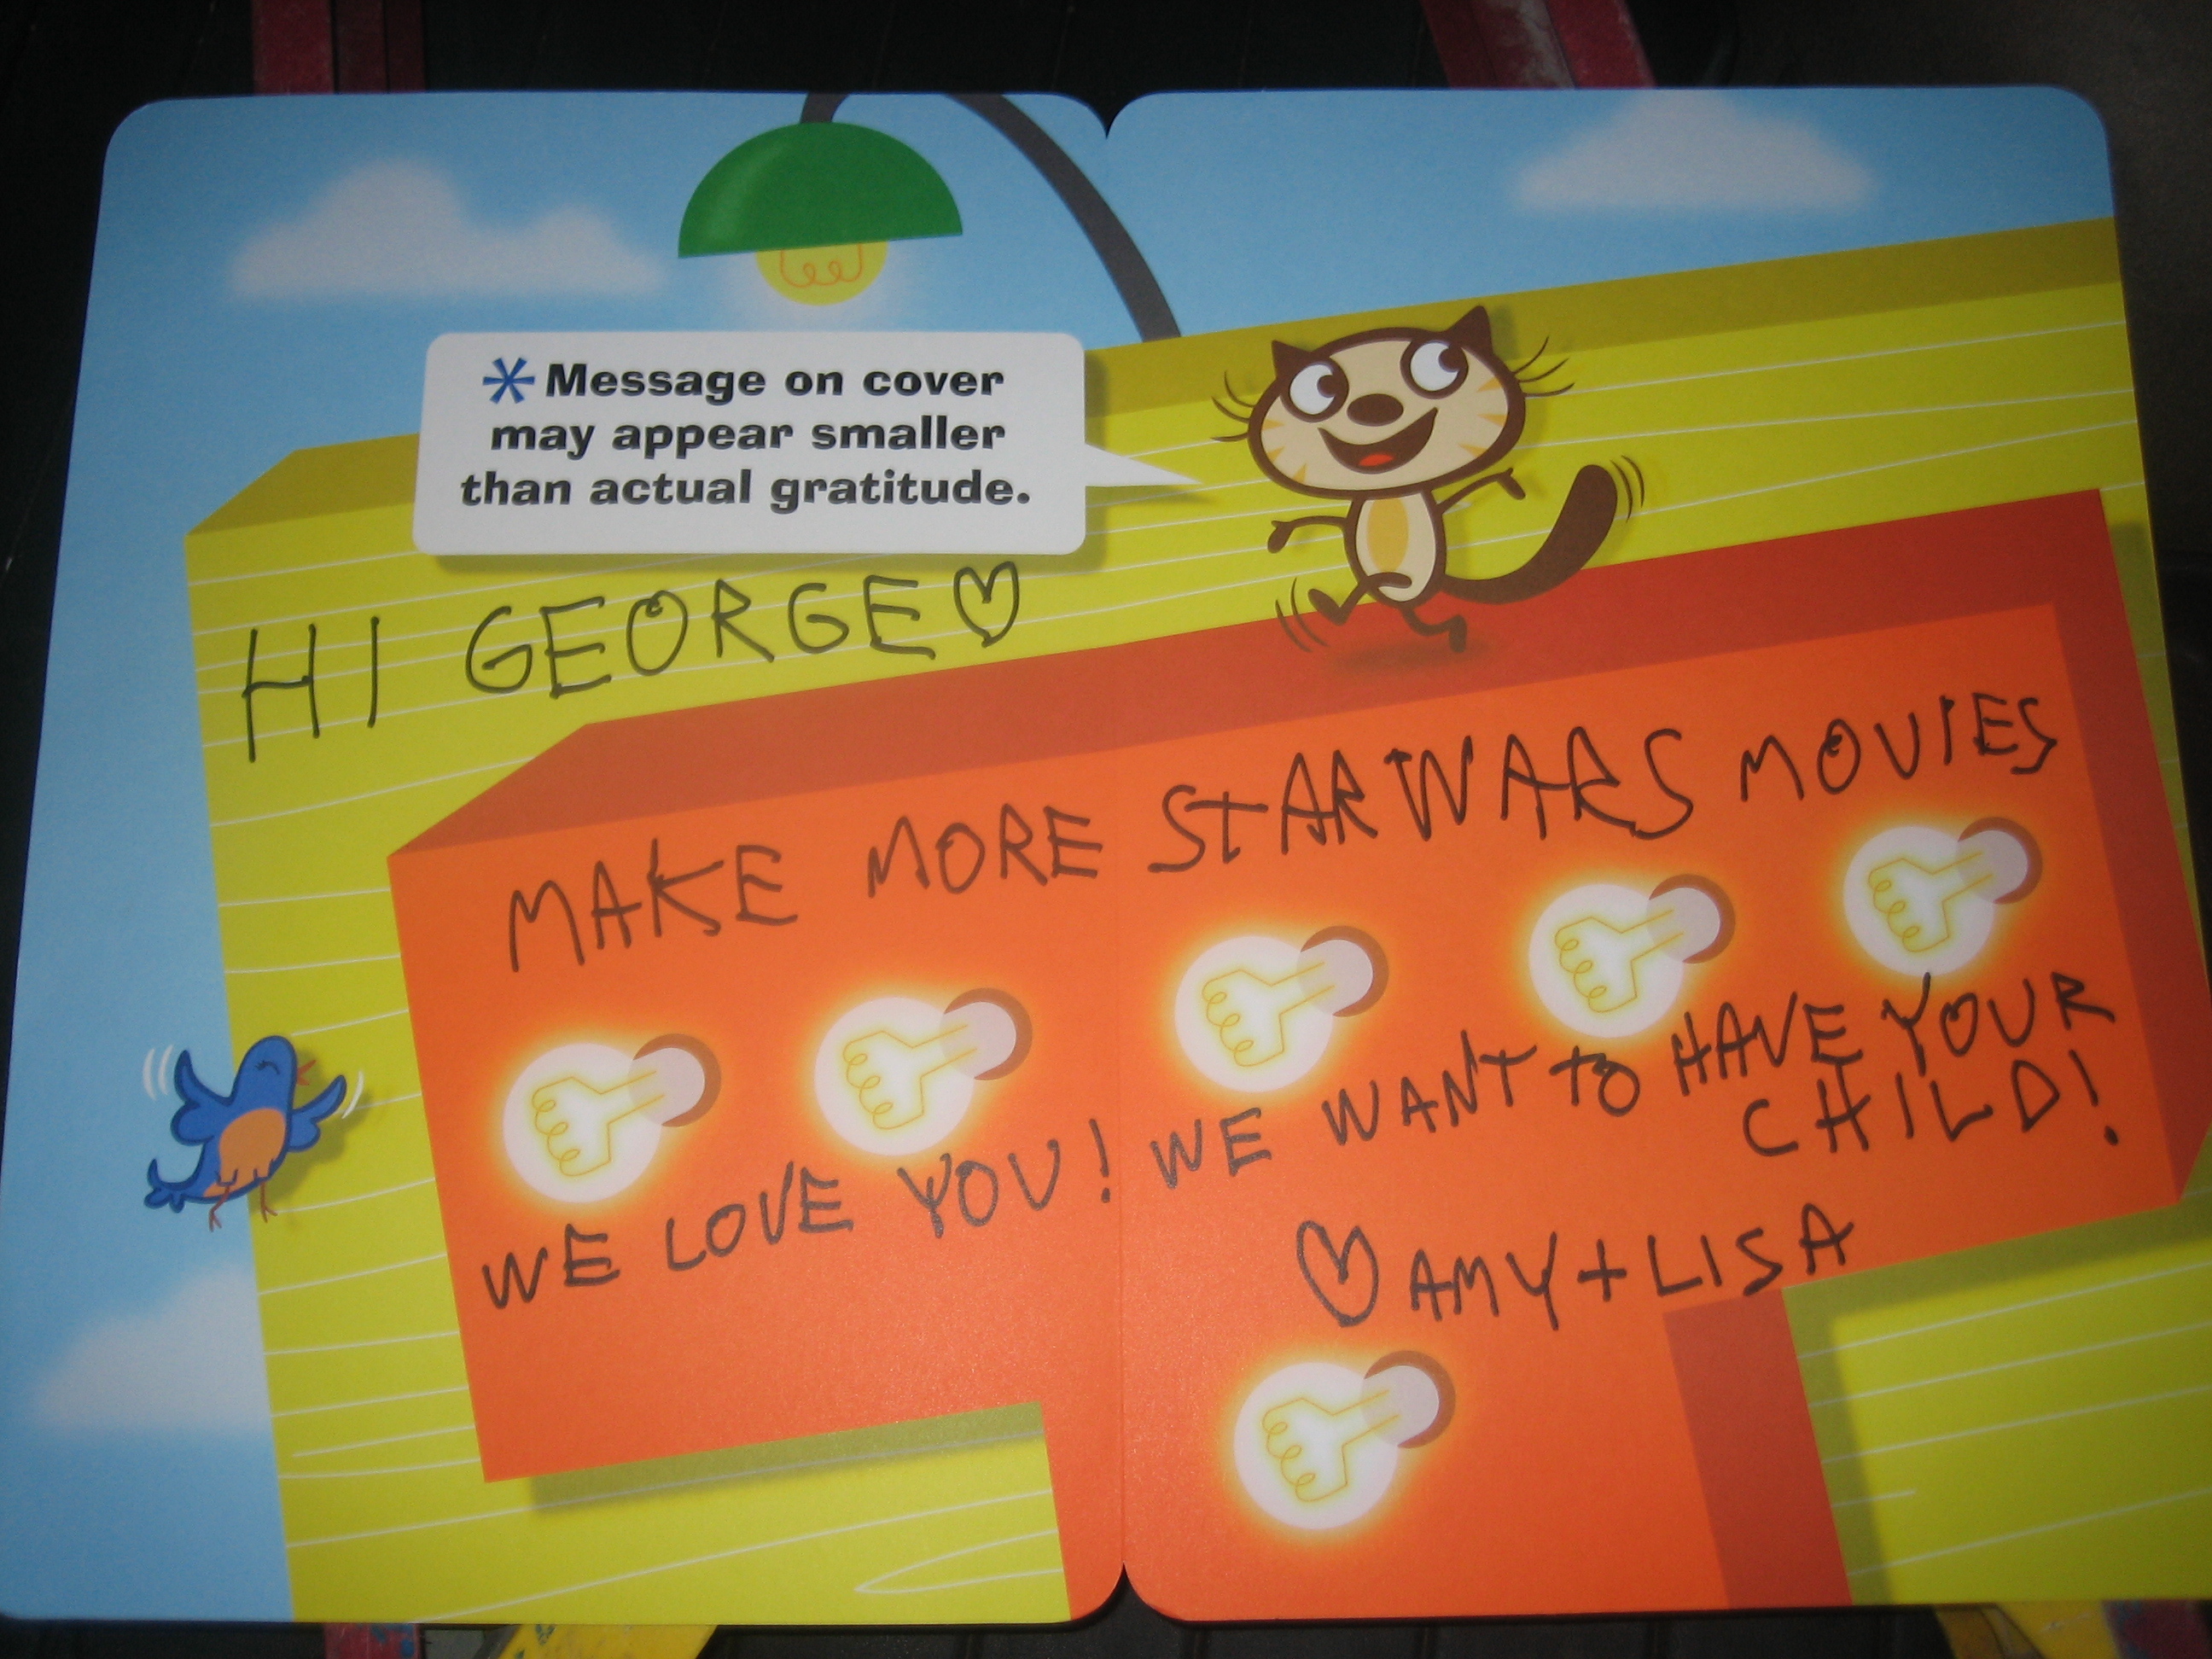 * Message on cover
may appear smaller
than actual gratitude.
HI GEORGE♡
MAKE MORE STARWARS MOVIES
WE LOVE YOU! WE WANT TO HAVE YOUR
CHILD!
♡ AMY + LISA